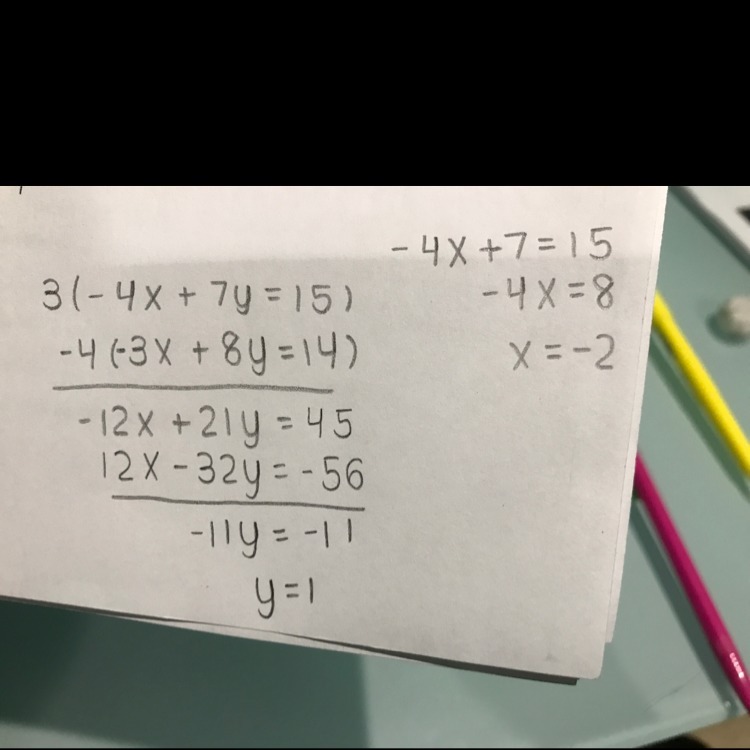 3(-4x + 7y = 15)
-4(-3x + 8y = 14)
-12x + 21y = 45
12x - 32y = -56
-11y = -11
y = 1
-4x + 7 = 15
-4x = 8
x = -2